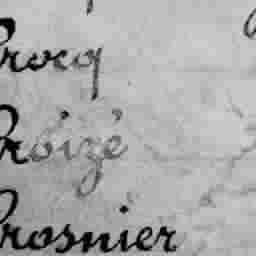 Crocq
Croizé
Crosnier